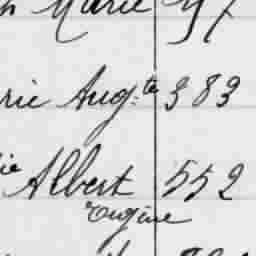 Marie 97
rie Aug.te 383
ie Albert 552
Eugène